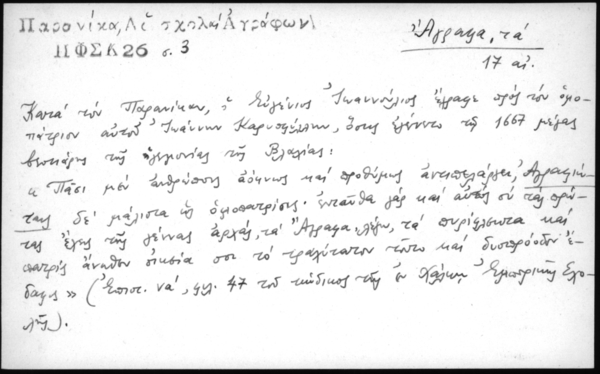 Παρανίκα, Αἱ σχολαί Ἀγράφων
ΠΦΣΚ26 σ. 3
Ἄγραφα, τά
17 αἰ.
Κατά τόν Παρανίκαν, ὁ Εὐγένιος Ἰωαννούλιος ἔγραφε πρός τόν ὁμο-
πάτριον αὐτοῦ Ἰωάννην Καρυοφύλλην, ὅστις ἐγένετο τῷ 1667 μέγας
βεστιάρης τῆς ἡγεμονίας τῆς Βλαχίας:
« Πᾶσι μέν ἀνθρώποις ἀόκνως καί προθύμως ἀντιπελάργει, Ἀγραφιώ-
ταις δέ μάλιστα ὡς ὁμοπατρίοις· ἐντεῦθα γάρ καί αὐτός σύ τάς πρώ-
τας ἔλχες τῆς γέννας ἀρχάς, τά Ἄγραφα λέγω, τά πυρίφλεκτα καί
πατρίς οἰκεία σοι τό τραχύτατον τοῦτο καί δυσπρόοδον ἔ-
δαφος » (Ἐπιστ. να', φυλ. 47 τοῦ κώδικος τῆς ἐν Χάλκῃ Ἐμπορικῆς Σχο-
λῆς).